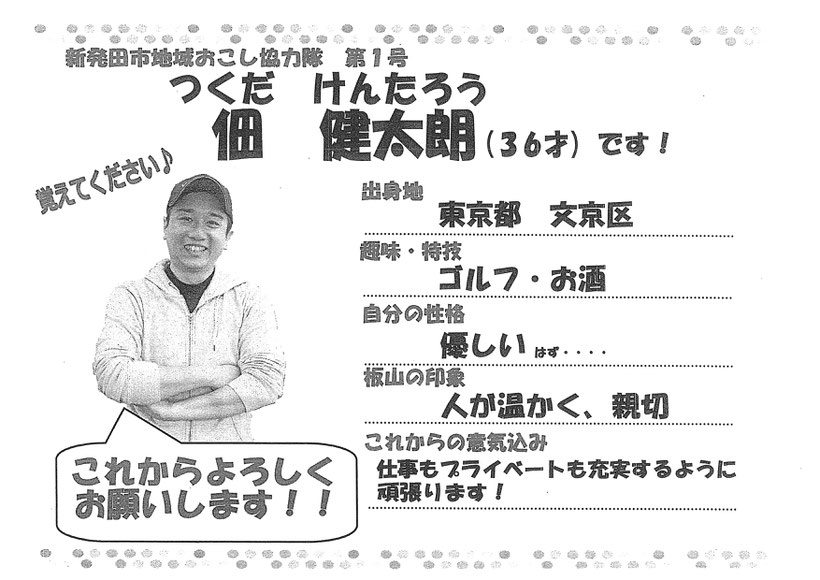 新発田市地域おこし協力隊　第1号
つくだ　けんたろう
佃　健太朗（36才）です！
覚えてください♪
出身地
東京都　文京区
趣味・特技
ゴルフ・お酒
自分の性格
優しい はず・・・・
板山の印象
人が温かく、親切
これからの意気込み
仕事もプライベートも充実するように
頑張ります！
これからよろしく
お願いします！！